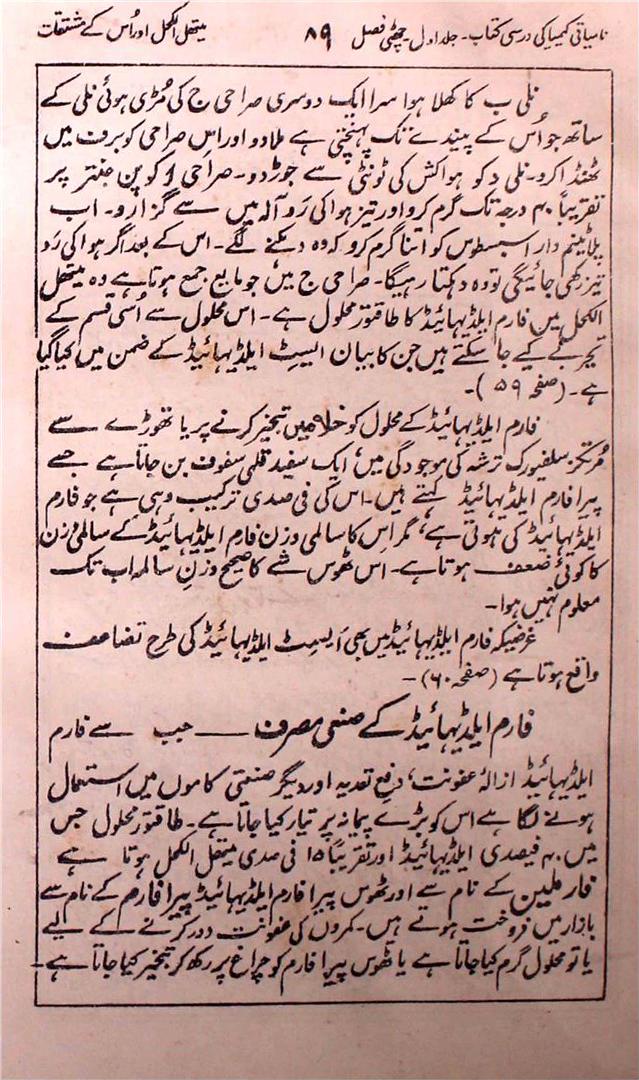 نامیاتی کیمیا کی درسی کتاب۔ جلد اول چھٹی فصل ۸۹ میتھل الکحل اور اُس کے مشتقات
نلی ب کا کھلا ہوا سرا ایک دوسری صراحی ج کی مُڑی ہوئی نلی کے
ساتھ جو اُس کے پیندے تک پہنچتی ہے ملا دو اور اس صراحی کو برف میں
ٹھنڈا کرو۔ نلی د کو ہوا کش کی ٹونٹی سے جوڑ دو۔ صراحی ا کو پن جنتر پر
تقریباً ۴۰ درجہ تک گرم کرو اور تیز ہوا کی رَو آلہ میں سے گزارو۔ اب
پلاٹینم دار اسبسطوس کو اتنا گرم کرو کہ وہ دہکنے لگے۔ اس کے بعد اگر ہوا کی رَو
تیز رکھی جائیگی تو وہ دہکتا رہیگا۔ صراحی ج میں جو مایع جمع ہوتا ہے وہ میتھل
الکحل میں فارم ایلڈیہائیڈ کا طاقتور محلول ہے۔ اس محلول سے اُسی قسم کے
تجربے کیے جا سکتے ہیں جن کا بیان ایسٹ ایلڈیہائیڈ کے ضمن میں کیا گیا
ہے۔ (صفحہ ۵۹)۔
فارم ایلڈیہائیڈ کے محلول کو خلا میں تبخیر کرنے پر یا تھوڑے سے
مُرتکز سلفیورک ترشہ کی موجودگی میں، ایک سفید قلمی سفوف بن جاتا ہے جسے
پیرا فارم ایلڈیہائیڈ کہتے ہیں۔ اس کی فی صدی ترکیب وہی ہے جو فارم
ایلڈیہائیڈ کی ہوتی ہے، مگر اس کا سالمی وزن فارم ایلڈیہائیڈ کے سالمی وزن
کا کوئی ضعف ہوتا ہے۔ اس ٹھوس شے کا صحیح وزنِ سالمہ اب تک
معلوم نہیں ہوا۔
غرضیکہ فارم ایلڈیہائیڈ میں بھی ایسٹ ایلڈیہائیڈ کی طرح تضاعف
واقع ہوتا ہے (صفحہ ۶۰)۔
فارم ایلڈیہائیڈ کے صنعتی مصرف ــــ جب سے فارم
ایلڈیہائیڈ ازالۂ عفونت، دفع تعدیہ اور دیگر صنعتی کاموں میں استعمال
ہونے لگا ہے اس کو بڑے پیمانہ پر تیار کیا جاتا ہے۔ طاقتور محلول جس
میں ۴۰ فیصدی ایلڈیہائیڈ اور تقریباً ۱۵ فی صدی میتھل الکحل ہوتا ہے
فارملین کے نام سے اور ٹھوس پیرا فارم ایلڈیہائیڈ پیرا فارم کے نام سے
بازار میں فروخت ہوتے ہیں۔ کمروں کی عفونت دور کرنے کے لیے
یا تو محلول گرم کیا جاتا ہے یا ٹھوس پیرا فارم کو چراغ پر رکھ کر تبخیر کیا جاتا ہے۔